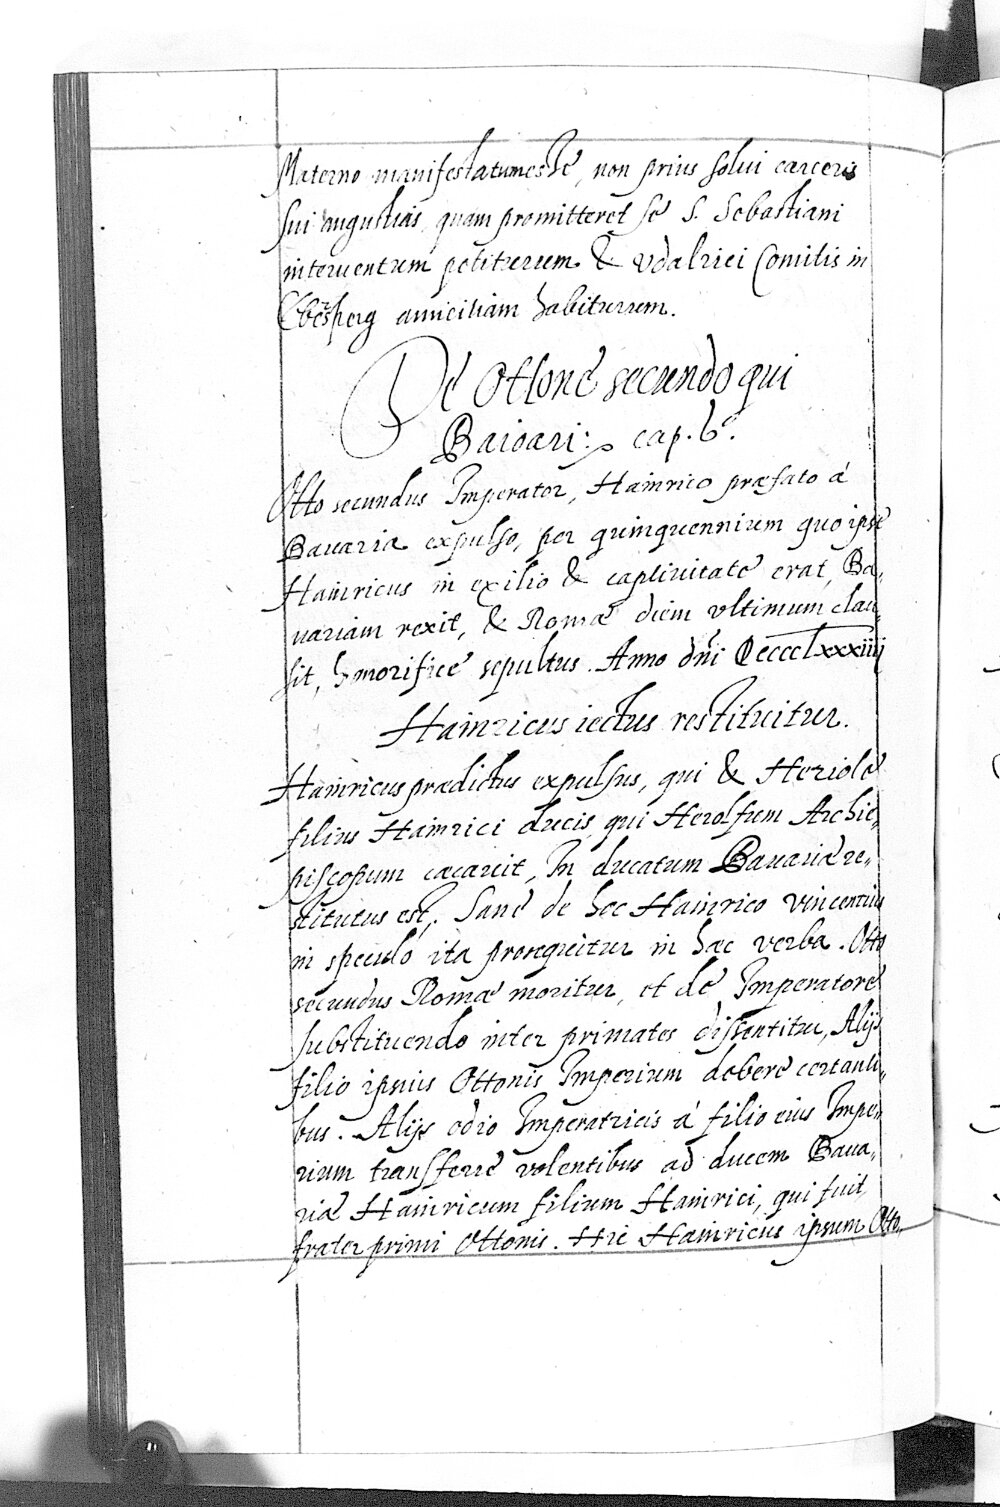 Materno manifestatumesse, non prius solui carceris
sui augustias, quam promitteret se S. Sebastiani
interuentum petiturum & Vdalrici Comitis in
Ebersperg amicitiam habiturum.
De Ottone secundo qui
Baioari: cap. 6.
Otto secundus Imperator, Hainrico præfato á
Bauaria expulso, per quinquennium quo ipse
Hainricus in exilio & captiuitate erat, Ba,
uariam rexit, & Romæ diem vltimum clau,
sit, honorificé sepultus. Anno dñi Dcccclxxxiiij
Hainricus iectus restituitur.
Hainricus prædictus expulsus, qui & Heziolo
filius Hainrici ducis, qui Herolfum Archie,
piscopum cæcauit, In ducatum Bauariæ re,
stitutus est, Sané de hoc Hainrico vincentius
in speculo ita prosequitur in hæc verba. Otto
secundus Romæ moritur, et de Imperatore
substituendo inter primates dissentitur, Alijs
filio ipsius Ottonis Imperium debere certanti,
bus. Alijs odio Imperatricis á filio eius Impe,
rium transferre volentibus ad ducem Baua,
riæ Hainricum filium Hainrici, qui fuit
frater primi Ottonis. Hic Hainricus ipsum Otto,